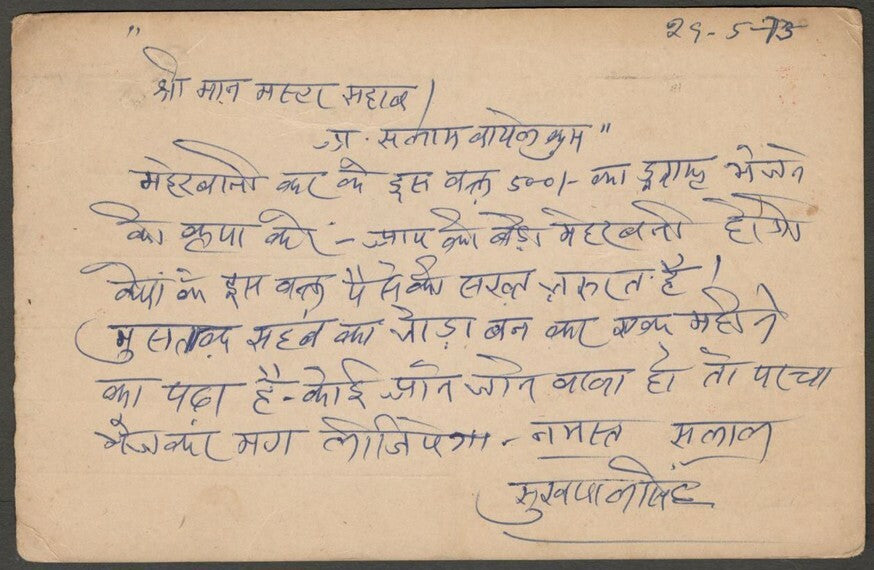 "
२९-५-७३
श्री मान मस्टर सहाब।
अ. सलाम वायलेकुम"
मेहरबानी कर के इस वक्त ५००/- का भेजने
की कृपा करें - आप की बड़ी मेहरबानी होगी
क्यों के इस वक्त पैसे की सख्त जरुरत है।
मुसताक सहब का जोड़ा बन कर एक महीने
का पढा है - कोई आने जाने वाला हो तो परचा
भेजकर मगा लीजियेगा - नमस्ते सलाम
सुखपाल सिंह